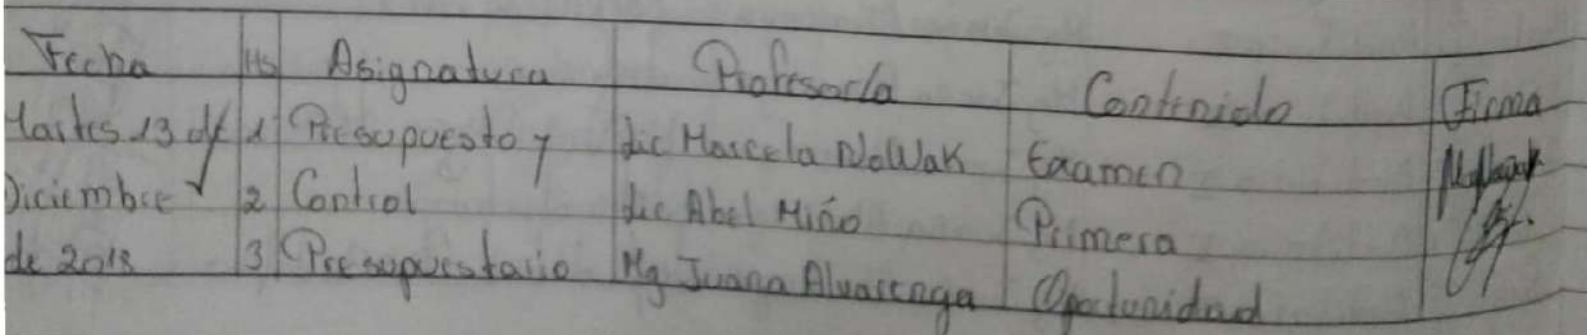 Fecha Hs Asignatura Profesor/a Contenido Firma
Martes 13 de 1 Presupuesto y Lic Marcela NoWak Examen
Diciembre 2 Control Lic Abel Miño Primera
de 2018 3 Presupuestario Mg Juana Alvarenga Oportunidad